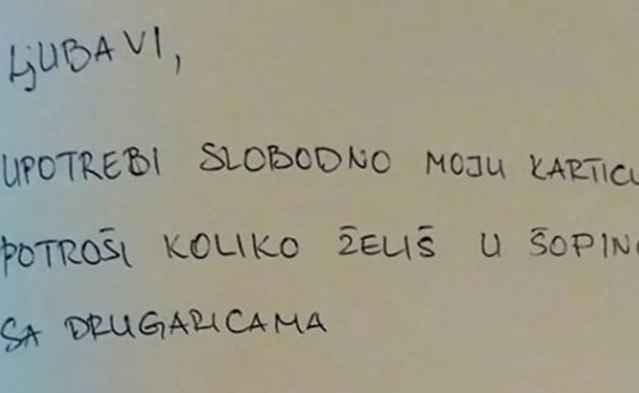 LjUBAVI,
UPOTREBI SLOBODNO MOJU KARTICU
POTROŠI KOLIKO ŽELIŠ U ŠOPING
SA DRUGARICAMA